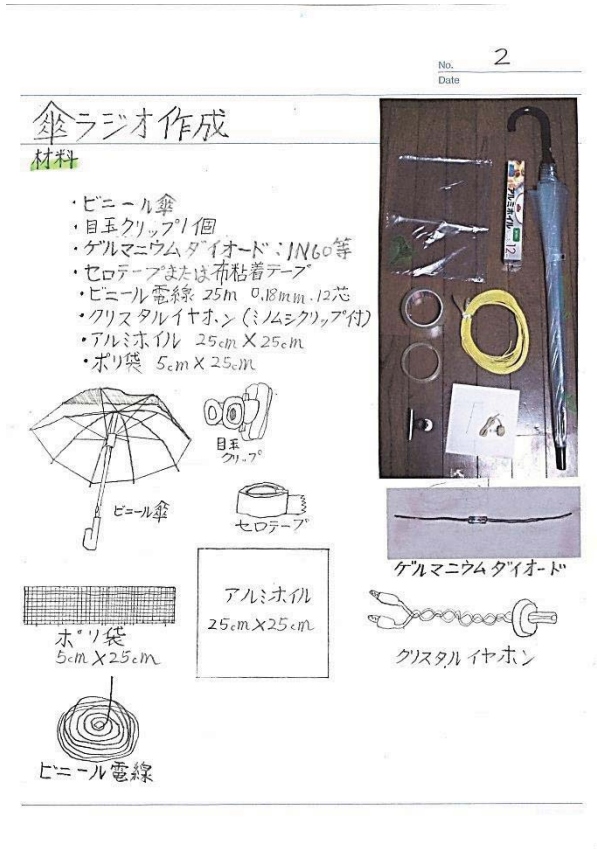 No. 2
Date
傘ラジオ作成
材料
・ビニール傘
・目玉クリップ1個
・ゲルマニウムダイオード:1N60等
・セロテープまたは布粘着テープ
・ビニール電線 25m 0.18mm.12芯
・クリスタルイヤホン(ミノムシクリップ付)
・アルミホイル 25cm×25cm
・ポリ袋 5cm×25cm
アルミホイル
12
目玉
クリップ
ビニール傘
セロテープ
ゲルマニウムダイオード
アルミホイル
25cm×25cm
ポリ袋
5cm×25cm
クリスタルイヤホン
ビニール電線